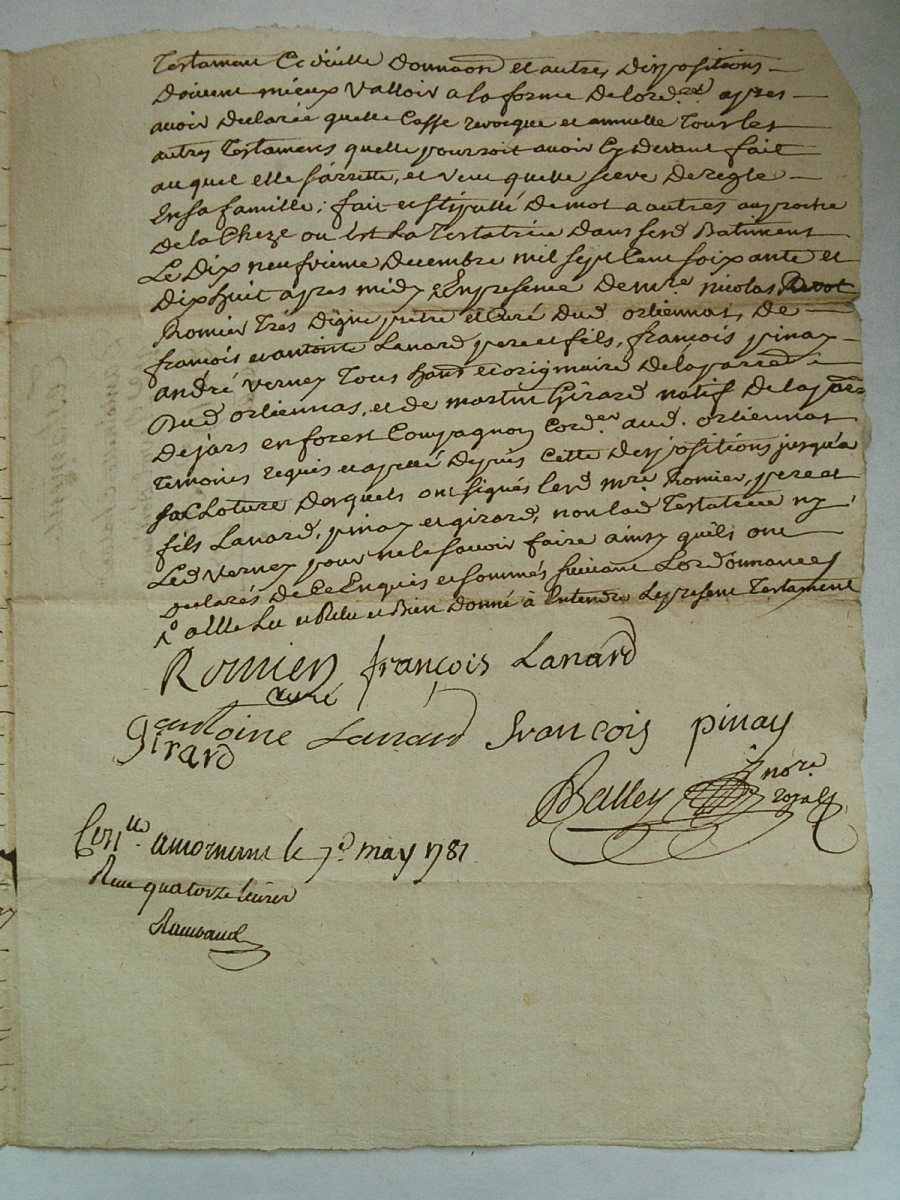 Testament Codicille Donnaõn et autres Dispositions
Doivent mieux Valloir a la forme De lord.ce apres
avoir Declarée quelle Casse revocque et annulle Tous les
autres Testamens quelle pourroit avoir Cy devant fait
auquel elle sarrette, et veut quelle serve De regle
En sa famille; fait et stipullé De mot a autres au proche
De la Cheze ou Est La Testatrice Dans sesd Batiment
Le Dix neufvieme Decembre mil sept Cent soixante et
Dix huit apres midy, En presence De m.re nicolas
Romier Trés Digne pretre et Curé Dud orliennas, De
françois et antoine Lanard pere et fils, françois pinay
andré Verney Tous hans et originaire De la parr.e
Dud orliennas, et de martin Girard natif De la par.e
De jars en forest Compagnon Cord.er aud. orliennas
Temoins requis et appellé Depuis Cette Dispositions jusqu'a
sa Cloture Desquels ont signés lesd mre Romier, pere et
fils Lanard, pinay et girard, non lad Testatrice ny
Led Verney pour ne le scavoir faire ainsy quils ont
Declarés De Ce Enquis et sommés suivant Lordonnance
a Elle Lu et Relu et Bien Donné à Entendre Le present Testament
Romier françois Lanard
Curé
antoine Lanard françois pinay
girard
Balley nore
royal
Con.lle a mornant le 7.e may 1781
Reçu quatorze livres